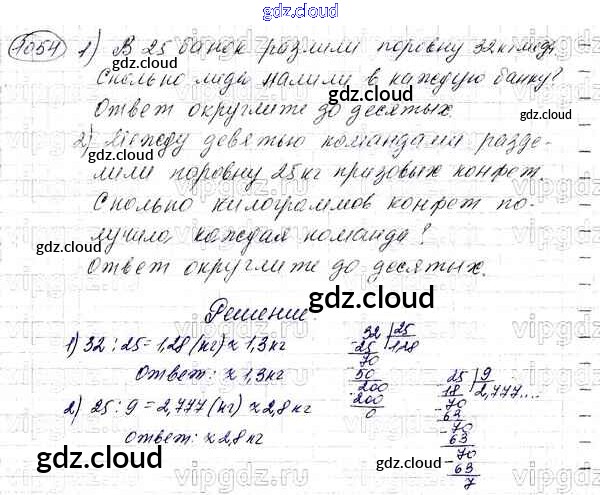 gdz.cloud
1054 1) В 25 банок разлили поровну 32 кг меда.
Сколько меда налили в каждую банку?
gdz.cloud
Ответ округлите до десятых.
gdz.cloud
2) Между девятью командами разде-
лили поровну 25 кг призовых конфет.
gdz.cloud
Сколько килограммов конфет по-
лучила каждая команда?
gdz.cloud
Ответ округлите до десятых.
gdz.cloud
Решение
gdz.cloud
1) 32 : 25 = 1,28 (кг) ≈ 1,3 кг
Ответ: ≈ 1,3 кг
2) 25 : 9 = 2,777 (кг) ≈ 2,8 кг
Ответ: ≈ 2,8 кг
32 25
25 1,28
70
50
200
200
0
25 9
18 2,777....
70
63
70
63
70
63
7
gdz.cloud
gdz.cloud
gdz.cloud
vipgdz